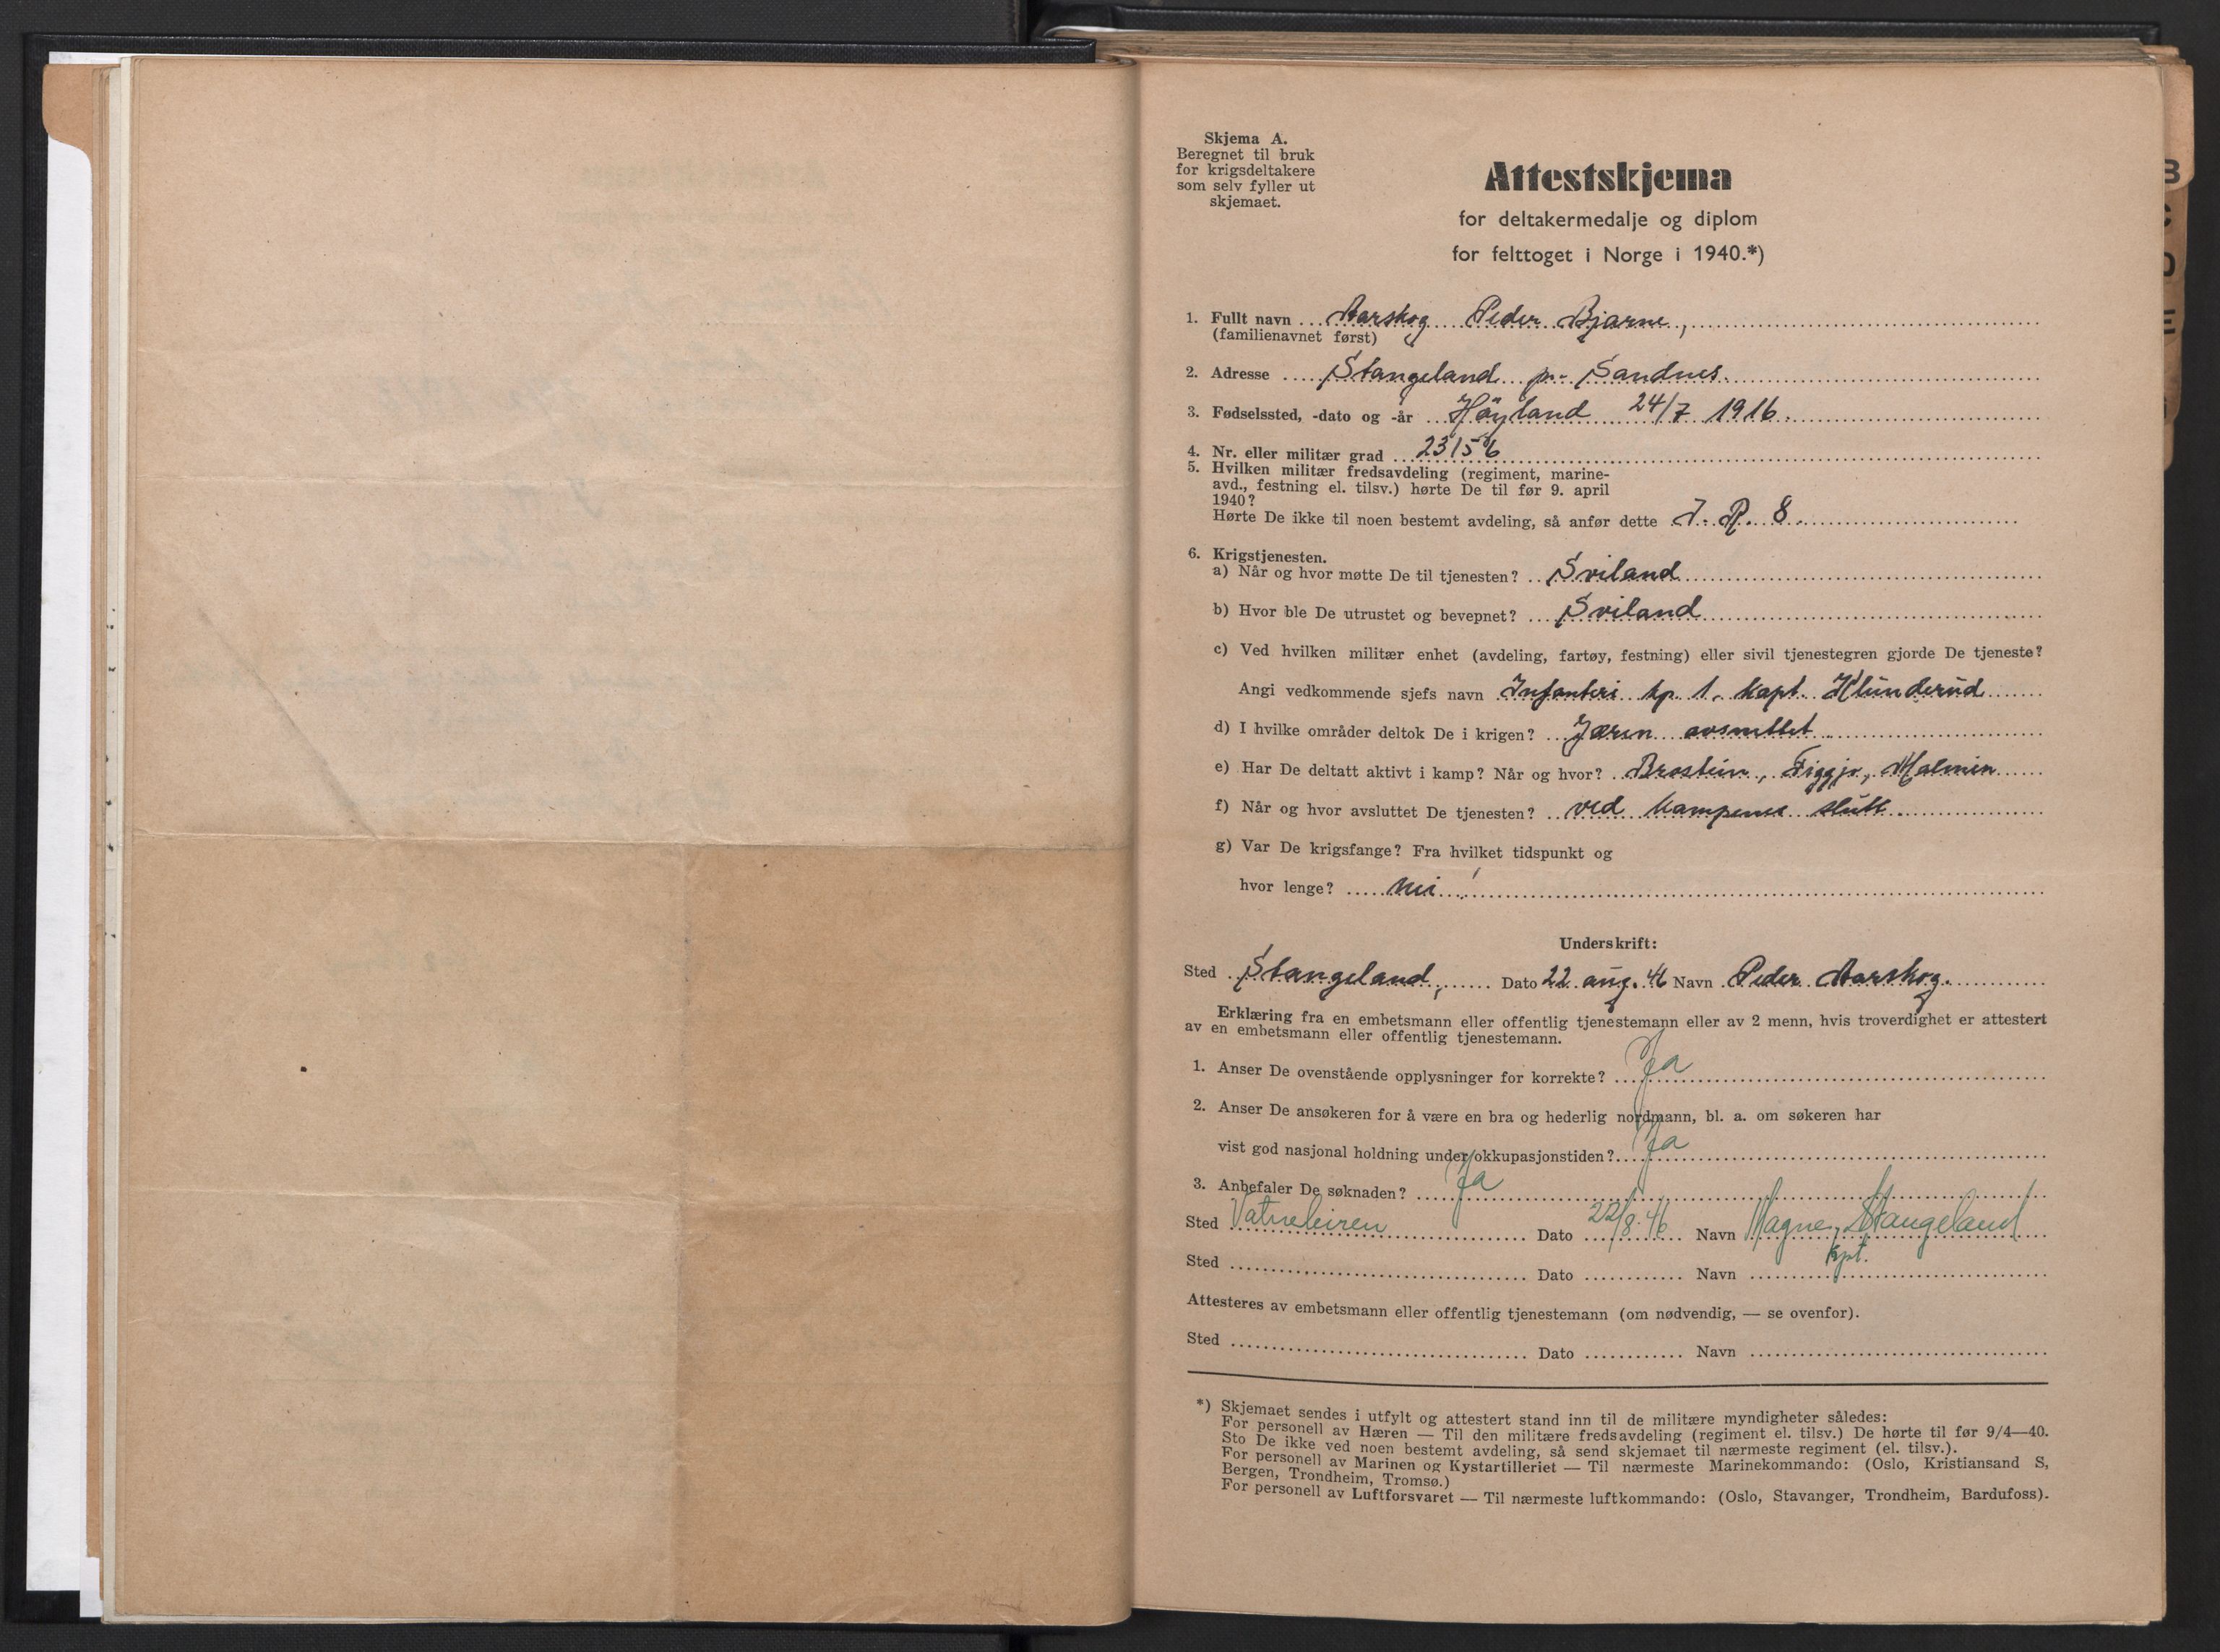 Skjema A.
Beregnet til bruk
for krigsdeltakere
som selv fyller ut
skjemaet.
Attestskjema
for deltakermedalje og diplom
for felttoget i Norge i 1940.*)
1. Fullt navn ... Aarskog Peder Bjarne,
(familienavnet først)
2. Adresse .... Stangeland pr. Sandnes.
3. Fødselssted, -dato og -år ... Høyland 24/7 1916.
4. Nr. eller militær grad ... 23156
5. Hvilken militær fredsavdeling (regiment, marine-
avd., festning el. tilsv.) hørte De til før 9. april
1940?
Hørte De ikke til noen bestemt avdeling, så anfør dette I. R. 8.
6. Krigstjenesten.
a) Når og hvor møtte De til tjenesten? .. Sviland
b) Hvor ble De utrustet og bevepnet? ... Sviland
c) Ved hvilken militær enhet (avdeling, fartøy, festning) eller sivil tjenestegren gjorde De tjeneste?
Angi vedkommende sjefs navn Infanteri kp. 1. kapt. Klunderud
d) I hvilke områder deltok De i krigen? .. Jæren avsnittet
e) Har De deltatt aktivt i kamp? Når og hvor? . Brostein, Figgjo, Malmin
f) Når og hvor avsluttet De tjenesten? .. ved kampenes slutt.
g) Var De krigsfange? Fra hvilket tidspunkt og
hvor lenge? ..... nei
Underskrift:
Sted . Stangeland, Dato 22 aug. 46 Navn . Peder Aarskog.
Erklæring fra en embetsmann eller offentlig tjenestemann eller av 2 menn, hvis troverdighet er attestert
av en embetsmann eller offentlig tjenestemann.
1. Anser De ovenstående opplysninger for korrekte? ... Ja
2. Anser De ansøkeren for å være en bra og hederlig nordmann, bl. a. om søkeren har
vist god nasjonal holdning under okkupasjonstiden? ... Ja
3. Anbefaler De søknaden? .... Ja
Sted Vatneleiren Dato 22/8.46 Navn Magne Stangeland
kpt.
Sted ... Dato ... Navn ...
Attesteres av embetsmann eller offentlig tjenestemann (om nødvendig, — se ovenfor).
Sted ... Dato ... Navn ...
*) Skjemaet sendes i utfylt og attestert stand inn til de militære myndigheter således:
For personell av Hæren — Til den militære fredsavdeling (regiment el. tilsv.) De hørte til før 9/4—40.
Sto De ikke ved noen bestemt avdeling, så send skjemaet til nærmeste regiment (el. tilsv.).
For personell av Marinen og Kystartilleriet — Til nærmeste Marinekommando: (Oslo, Kristiansand S,
Bergen, Trondheim, Tromsø.)
For personell av Luftforsvaret — Til nærmeste luftkommando: (Oslo, Stavanger, Trondheim, Bardufoss).
B
C
D
E